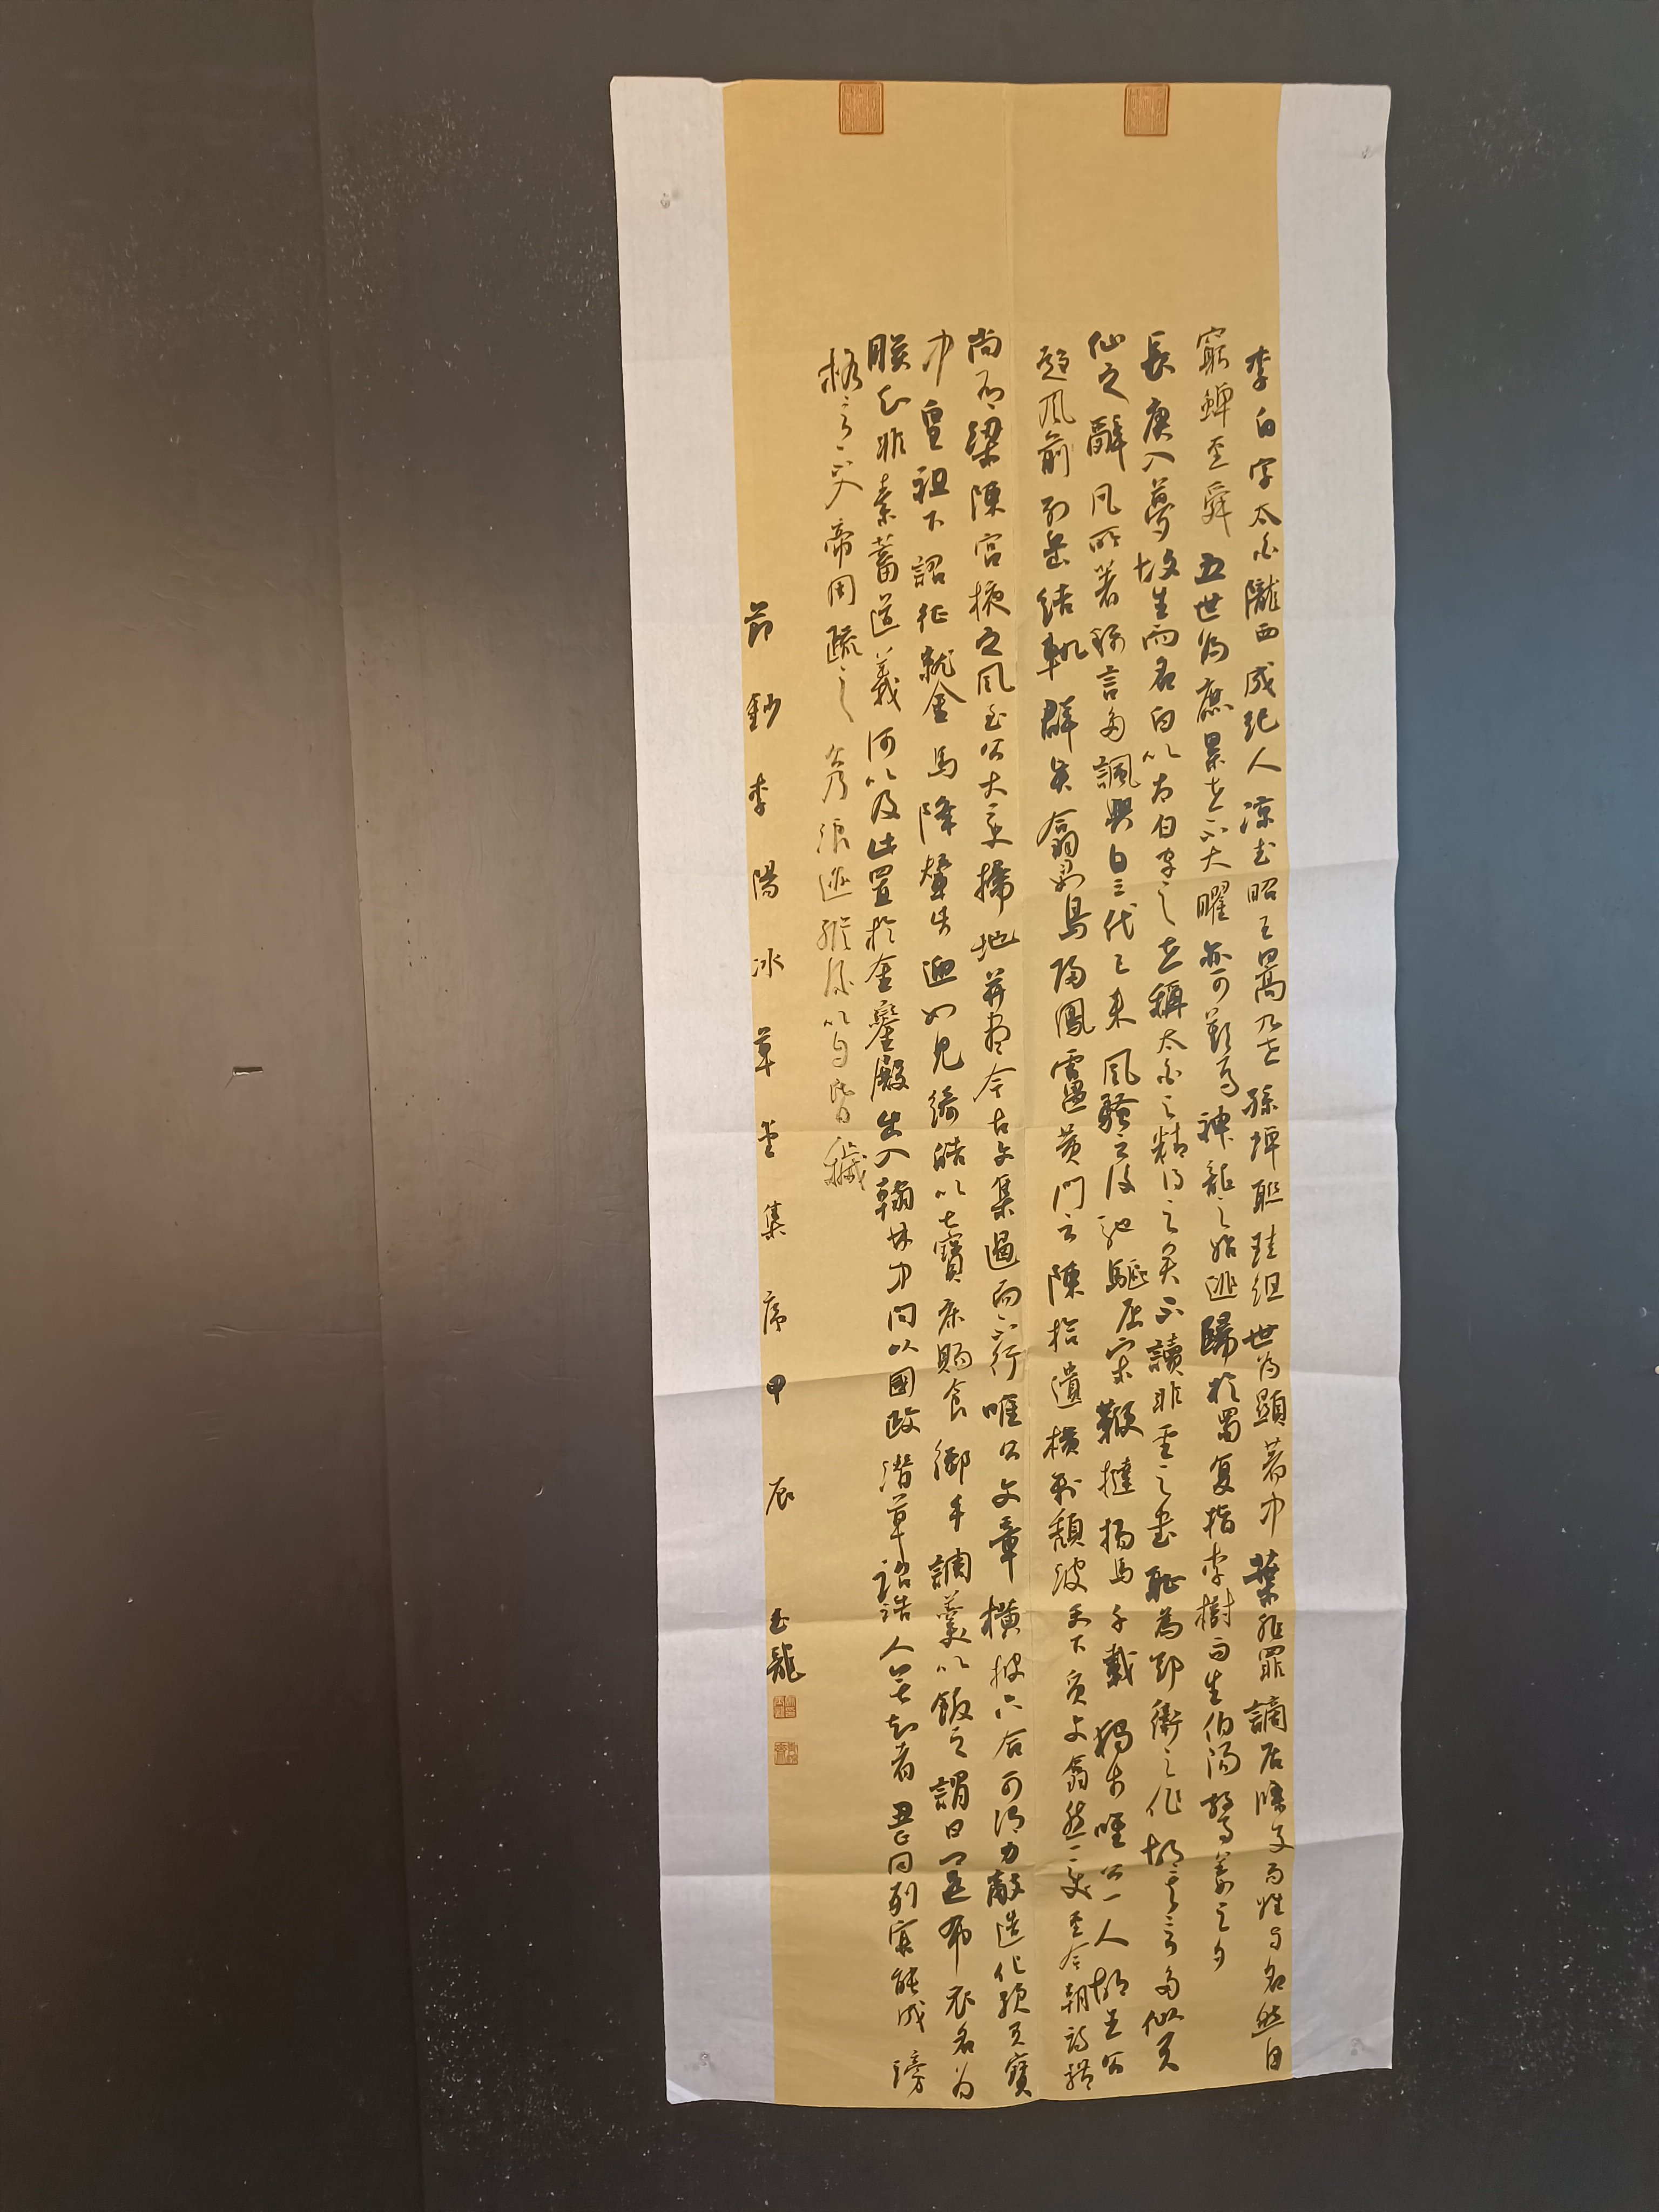 李白字太白隴西成紀人涼武昭王暠九世孫蟬聯珪組世為顯著中葉非罪謫居條支易姓與名然自
窮蟬至舜五世為庶累世不大曜亦可歎焉神龍之始逃歸於蜀复指李樹而生伯陽驚姜之夕
長庚入夢故生而名白以太白字之世稱太白之精得之矣不讀非聖之書恥為鄭衛之作故其言多似天
仙之辭凡所著述言多諷興自三代已來風騷之後馳驅屈宋鞭撻揚馬千載獨步唯公一人故王公
趨風前列岳結軌群賢翕習如鳥歸鳳盧黃門云陳拾遺橫制頹波天下質文翕然一變至今朝詩體
尚有梁陳宮掖之風至公大變掃地并盡今古文集遏而不行唯公文章橫披六合可謂力敵造化歟天寶
中皇祖下詔征就金馬降輦步迎如見綺皓以七寶床賜食御手調羹以飯之謂曰卿是布衣名為
朕知非素蓄道義何以及此置於金鑾殿出入翰林中問以國政潛草詔誥人無知者丑正同列害能成謗
格言不入帝用疏之公乃浪跡縱酒以自昏穢
節鈔李陽冰草堂集序甲辰玉龍